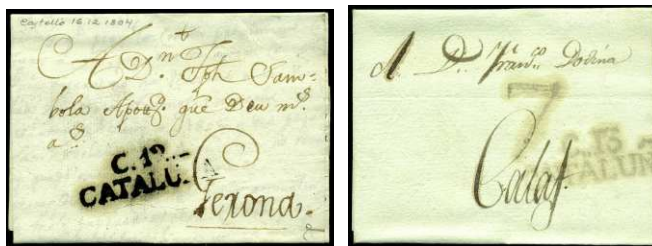 Castelló 16.12.1804
A Dn Jph Sam=
bola Apotg. que Deu md.
as.
C. 12
CATALUÑA
Gerona.
A Dn Franco Dodina
7
C. 13
CATALUÑ
Calaf.